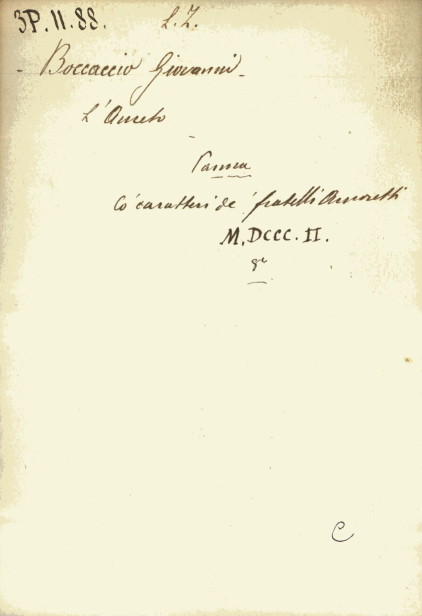 3P.11.88. L. Z.
Boccaccio Giovanni
L'Ameto
Parma
Co' caratteri de' fratelli Amoretti
M.DCCC.II.
8°
C